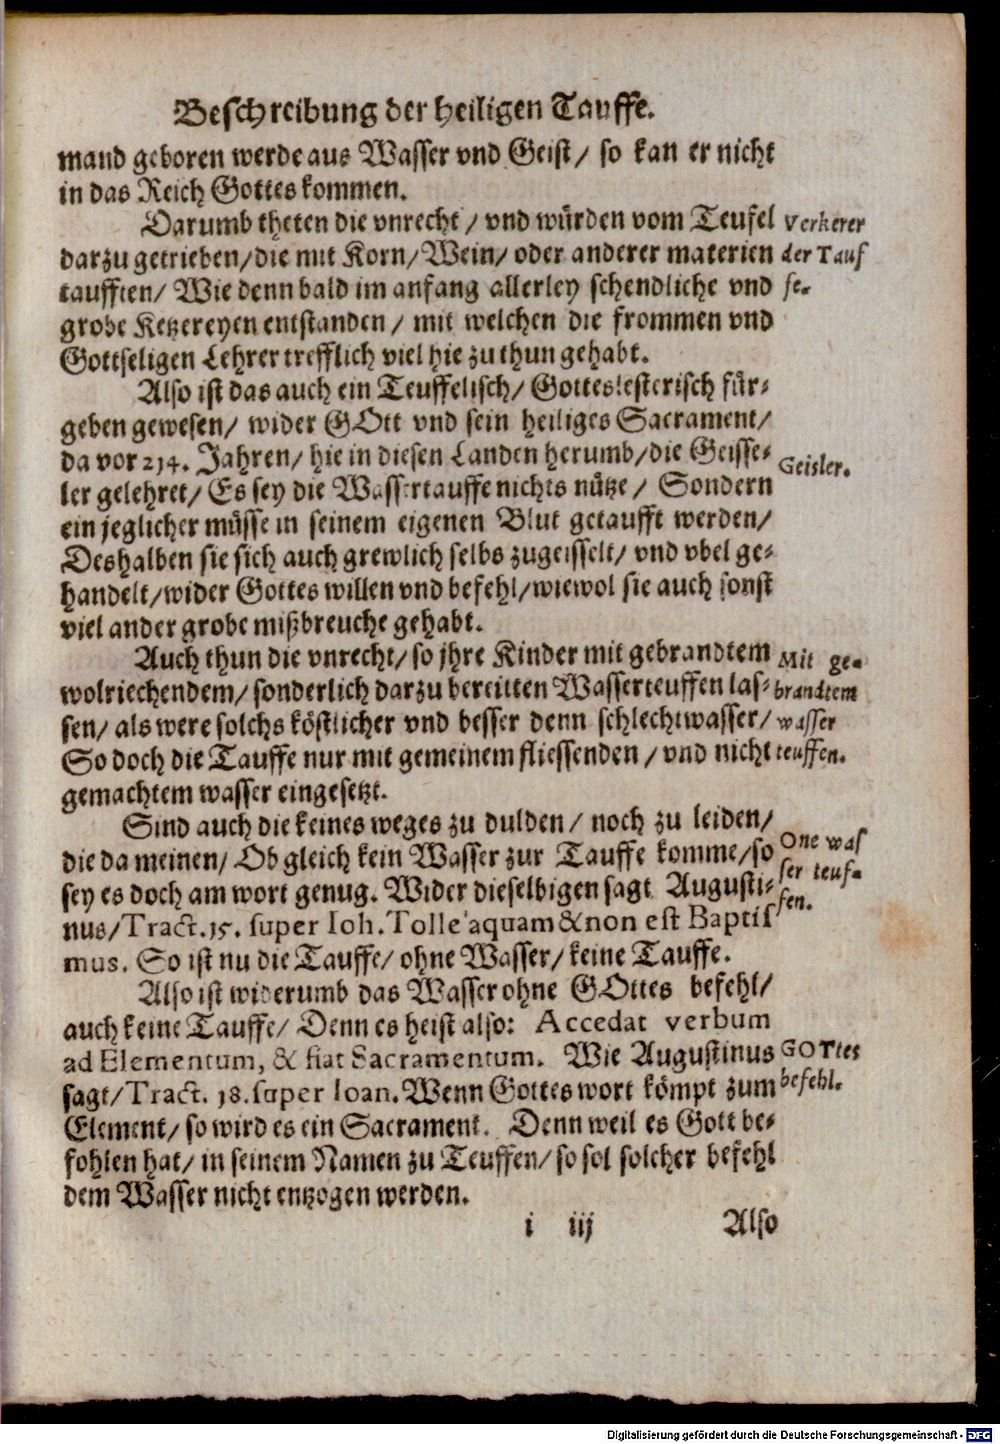 Beschreibung der heiligen Tauffe.
mand geboren werde aus Wasser vnd Geist/ so kan er nicht
in das Reich Gottes kommen.
Darumb theten die vnrecht/ vnd würden vom Teufel
Verkerer
darzu getrieben/ die mit Korn/ Wein/ oder anderer materien
der Tauf
taufften/ Wie denn bald im anfang allerley schendliche vnd
fe.
grobe Ketzereyen entstanden/ mit welchen die frommen vnd
Gottseligen Lehrer trefflich viel hie zu thun gehabt.
Also ist das auch ein Teuffelisch/ Gotteslesterisch für-
geben gewesen/ wider GOtt vnd sein heiliges Sacrament/
da vor 214. Jahren/ hie in diesen Landen herumb/ die Geisse-
Geisler.
ler gelehret/ Es sey die Wassertauffe nichts nütze/ Sondern
ein jeglicher müsse in seinem eigenen Blut getaufft werden/
Deshalben sie sich auch grewlich selbs zugeisselt/ vnd vbel ge-
handelt/ wider Gottes willen vnd befehl/ wiewol sie auch sonst
viel ander grobe mißbreuche gehabt.
Auch thun die vnrecht/ so jhre Kinder mit gebrandtem
Mit ge-
wolriechendem/ sonderlich darzu bereitten Wasser teuffen las-
brandtem
sen/ als were solchs köstlicher vnd besser denn schlecht wasser/
wasser
So doch die Tauffe nur mit gemeinem fliessenden/ vnd nicht
teuffen.
gemachtem wasser eingesetzt.
Sind auch die keines weges zu dulden/ noch zu leiden/
One was
die da meinen/ Ob gleich kein Wasser zur Tauffe komme/ so
ser teuf-
sey es doch am wort genug. Wider dieselbigen sagt Augusti-
fen.
nus/ Tract. 15. super Ioh. Tolle aquam & non est Baptis
mus. So ist nu die Tauffe/ ohne Wasser/ keine Tauffe.
Also ist widerumb das Wasser ohne GOttes befehl/
auch keine Tauffe/ Denn es heist also: Accedat verbum
ad Elementum, & fiat Sacramentum. Wie Augustinus
GOTtes
sagt/ Tract. 18. super Ioan. Wenn Gottes wort kömpt zum
befehl.
Element/ so wird es ein Sacrament. Denn weil es Gott be-
fohlen hat/ in seinem Namen zu Teuffen/ so sol solcher befehl
dem Wasser nicht entzogen werden.
i iij
Also
Digitalisierung gefördert durch die Deutsche Forschungsgemeinschaft - DFG